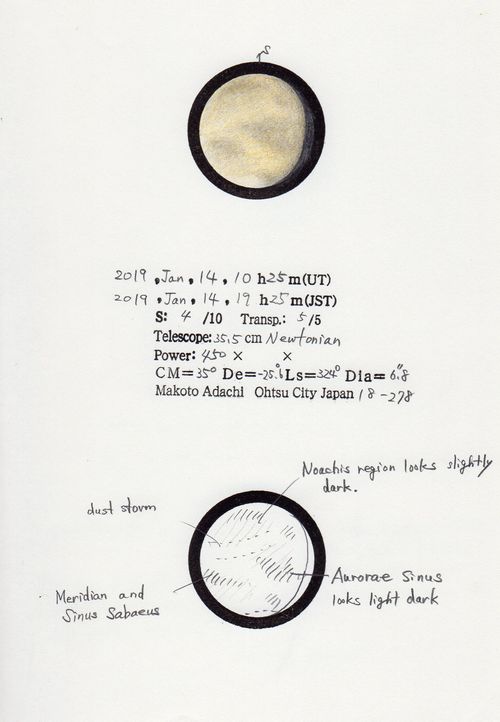 S
2019 , Jan , 14 , 10 h 25 m (UT)
2019 , Jan , 14 , 19 h 25 m (JST)
S: 4 /10 Transp.: 5 /5
Telescope: 35.5 cm Newtonian
Power: 450 × ×
CM= 35° De= -25.6° Ls= 324° Dia= 6".8
Makoto Adachi Ohtsu City Japan 18-278
Noachis region looks slightly
dark.
dust storm
Aurorae Sinus
looks light dark
Meridian and
Sinus Sabaeus